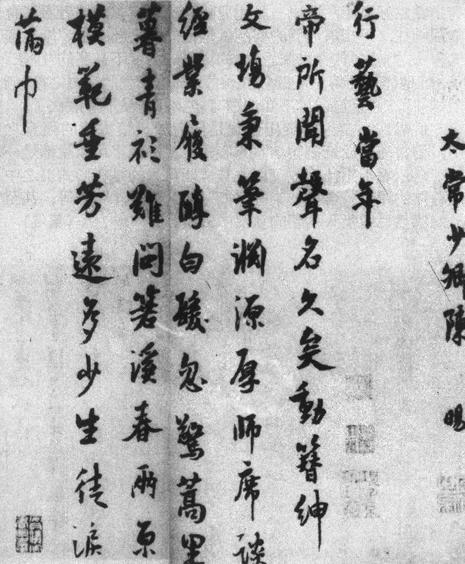 太常少卿陳
行藝當年
帝所聞聲名久矣動簪紳
文場秉筆淵源厚師席談
經業履醇白髮忽驚蒿里
暮青衿難問箬溪春兩京
模範垂芳遠多少生徒淚
滿巾